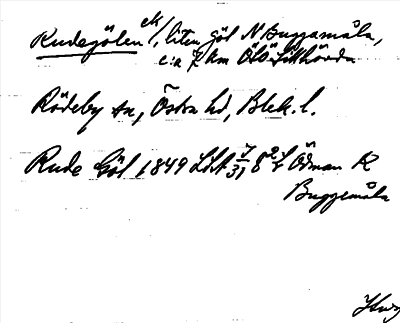 Rudegölen ek/, liten göl N Buggamåla,
c:a 7 km ÖSÖ Fillhörda
Rödeby sn, Östra hd, Blek. l.
Rude Göl 1849 LSA 7/31 Ödman K
Buggemåla